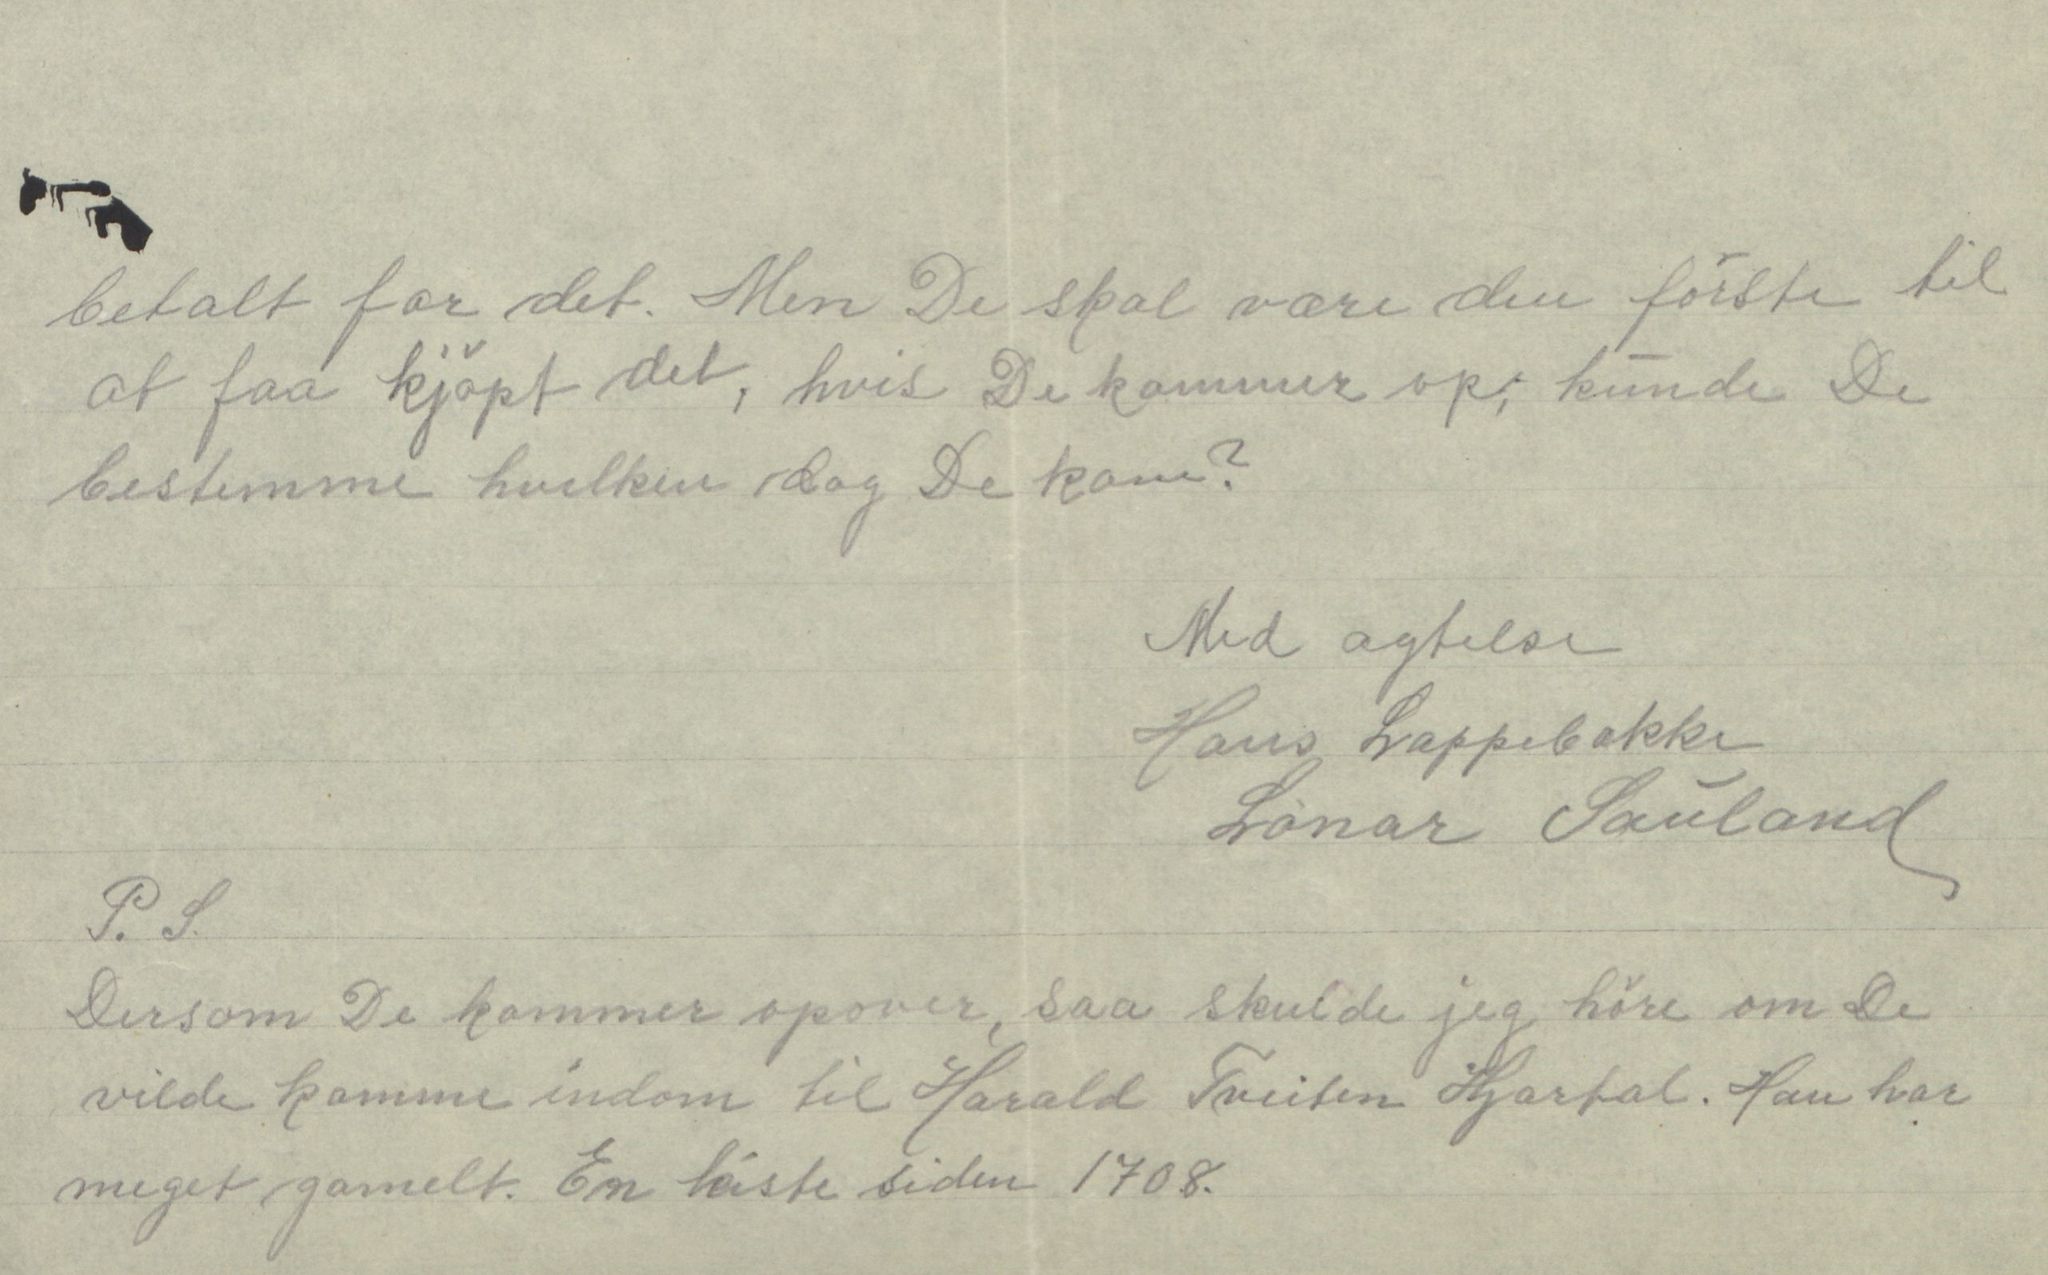 betalt for det. Men De skal være den förste til
at faa kjöpt det, hvis De kommer op; kunde De
bestemme hvilken dag De kom?
Med agtelse
Hans Lappebakke
Lönar Sauland
P. S.
Dersom De kommer opover, saa skulde jeg höre om De
vilde komme indom til Harald Tveiten Hjartal. Han har
meget gamelt. En kiste siden 1708.